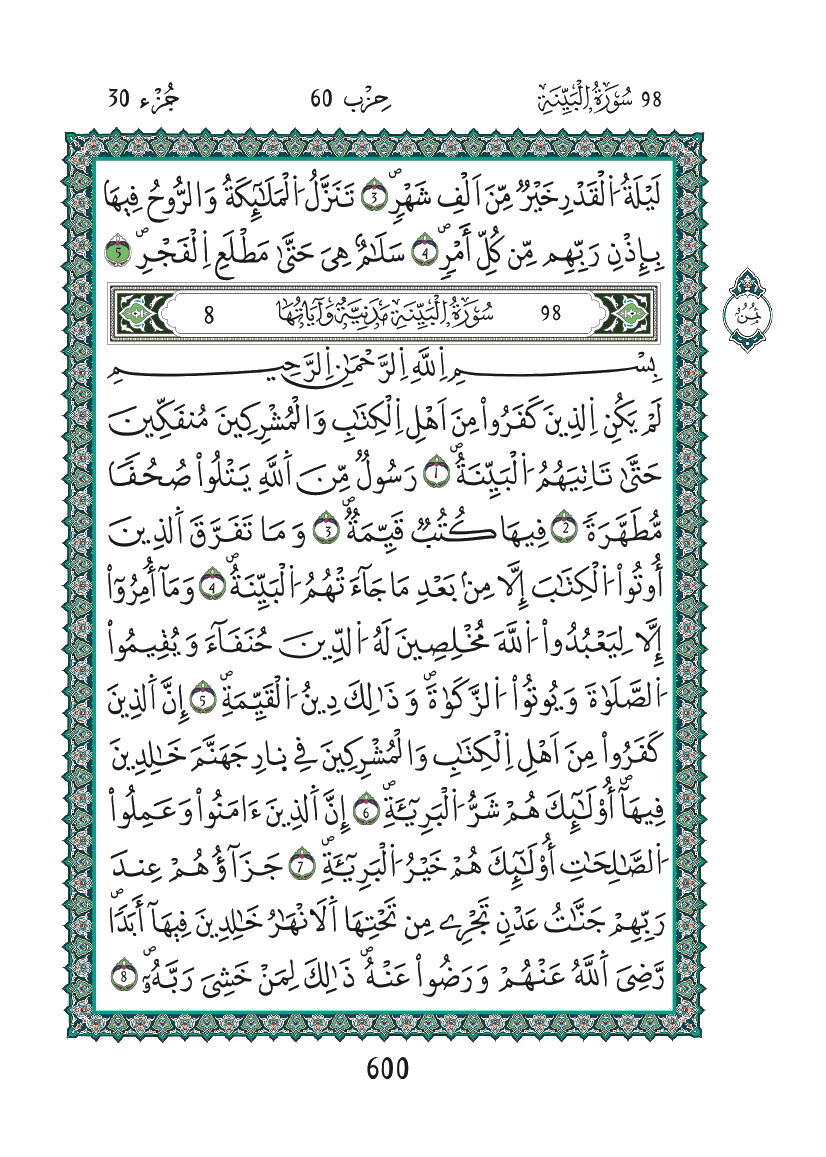 98 سُورَةُ الْبَيِّنَةِ حِزْب 60 جُزْء 30
لَيْلَةُ اَ۬لْقَدْرِ خَيْرٌ مِّنَ اَلْفِ شَهْرٍۖ 3 تَنَزَّلُ اُ۬لْمَلَٰٓئِكَةُ وَالرُّوحُ فِيهَا
بِإِذْنِ رَبِّهِم مِّن كُلِّ أَمْرٍۖ 4 سَلَٰمٌ هِيَ حَتَّىٰ مَطْلَعِ اِ۬لْفَجْرِۖ 5
98 سُورَةُ الْبَيِّنَةِ مَدَنِيَّةٌ وَآيَاتُهَا 8
ثُمُنٌ
بِسْمِ اِ۬للَّهِ اِ۬لرَّحْمَٰنِ اِ۬لرَّحِيمِ
لَمْ يَكُنِ اِ۬لذِينَ كَفَرُواْ مِنَ اَهْلِ اِ۬لْكِتَٰبِ وَالْمُشْرِكِينَ مُنفَكِّينَ
حَتَّىٰ تَاتِيَهُمُ اُ۬لْبَيِّنَةُۖ 1 رَسُولٌ مِّنَ اَ۬للَّهِ يَتْلُواْ صُحُفًا
مُّطَهَّرَةً 2 فِيهَا كُتُبٌ قَيِّمَةٌۖ 3 وَمَا تَفَرَّقَ اَ۬لذِينَ
أُوتُواْ اُ۬لْكِتَٰبَ إِلَّا مِنۢ بَعْدِ مَا جَآءَتْهُمُ اُ۬لْبَيِّنَةُۖ 4 وَمَآ أُمِرُوٓاْ
إِلَّا لِيَعْبُدُواْ اُ۬للَّهَ مُخْلِصِينَ لَهُ اُ۬لدِّينَ حُنَفَآءَ وَيُقِيمُواْ
اُ۬لصَّلَوٰةَ وَيُوتُواْ اُ۬لزَّكَوٰةَۖ وَذَٰلِكَ دِينُ اُ۬لْقَيِّمَةِۖ 5 إِنَّ اَ۬لذِينَ
كَفَرُواْ مِنَ اَهْلِ اِ۬لْكِتَٰبِ وَالْمُشْرِكِينَ فِي نارِ جَهَنَّمَ خَٰلِدِينَ
فِيهَآۖ أُوْلَٰٓئِكَ هُمْ شَرُّ اُ۬لْبَرِيٓـَٔةِۖ 6 إِنَّ اَ۬لذِينَ ءَامَنُواْ وَعَمِلُواْ
اُ۬لصَّٰلِحَٰتِ أُوْلَٰٓئِكَ هُمْ خَيْرُ اُ۬لْبَرِيٓـَٔةِۖ 7 جَزَآؤُهُمْ عِندَ
رَبِّهِمْ جَنَّٰتُ عَدْنٍ تَجْرِے مِن تَحْتِهَا اَ۬لَانْهَٰرُ خَٰلِدِينَ فِيهَآ أَبَدًاۖ
رَّضِيَ اَ۬للَّهُ عَنْهُمْ وَرَضُواْ عَنْهُۖ ذَٰلِكَ لِمَنْ خَشِيَ رَبَّهُۥۖ 8
600